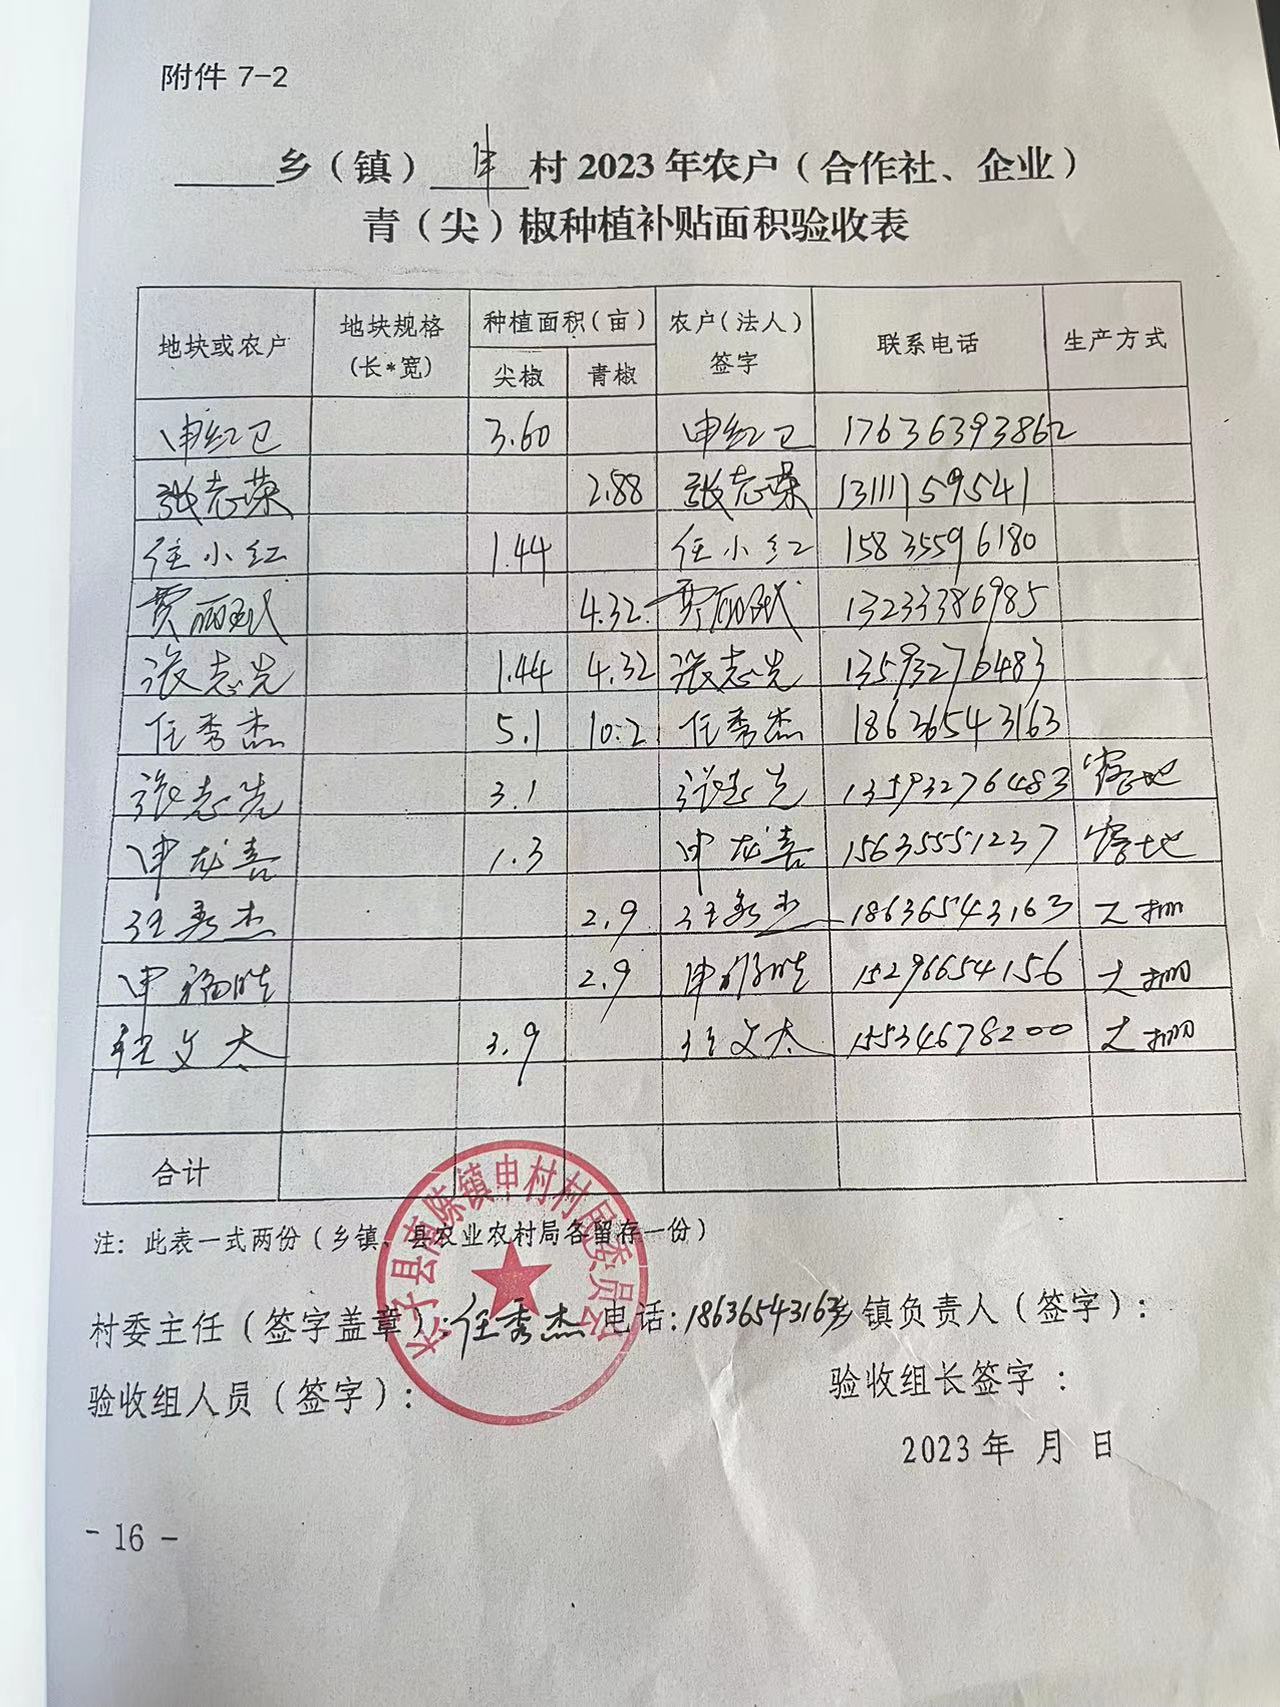 附件 7-2
乡（镇） 申 村 2023 年农户（合作社、企业）
青（尖）椒种植补贴面积验收表
地块或农户 地块规格(长*宽) 种植面积(亩) 农户(法人)签字 联系电话 生产方式
尖椒 青椒
申红卫 3.60 申红卫 17636393862
张志荣 2.88 张志荣 13111159541
任小红 1.44 任小红 15835596180
贾丽 4.32 贾丽 13233386985
张志先 1.44 4.32 张志先 13593276483
任秀杰 5.1 10.2 任秀杰 18636543163
张志先 3.1 张志先 13593276483 露地
申龙喜 1.3 申龙喜 15635551237 露地
任秀杰 2.9 任秀杰 18636543163 大棚
申福胜 2.9 申福胜 15296654156 大棚
文太 3.9 文太 15534678200 大棚
合计
注：此表一式两份（乡镇、县农业农村局各留存一份）
长子县高陈镇申村村民委员会
村委主任（签字盖章）：任秀杰 电话：18636543163 乡镇负责人（签字）：
验收组人员（签字）： 验收组长签字：
2023 年 月 日
- 16 -